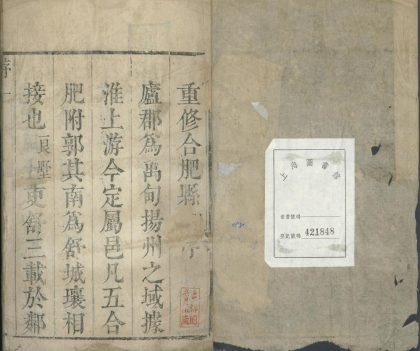 重修合肥縣
廬郡為禹甸揚州之域據
淮上游今定屬邑凡五合
肥附郭其南為舒城壤相
接也
吏舒三載於鄰
上海圖書館
421848